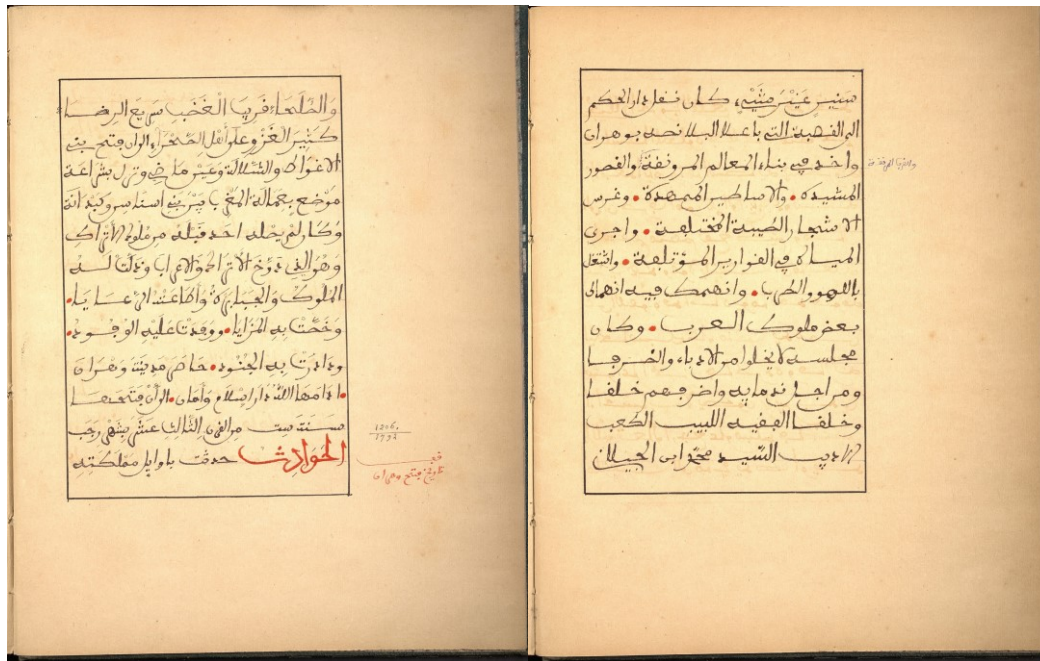 سنين غير كان نقل دار الحكم
الى القصبة التي باعلا البلا نحبه بوهران
واخذ في بناء المعالم المرونقة والقصور
المشيدة • والاساطير الممهدة • وغرس
الاشجار الطيبة المختلفة • واجرى
المياه في القوارير المؤتلفة • واشتغل
باللهو والطرب • وانهمك فيه انهماك
بعض ملوك العرب • وكان
مجلسه لا يخلوا من الادباء والظرفا
ومن اجل ندمايه واضرفهم خلقا
وخلفا الفقيه اللبيب
الاديب السيد محمد ابن الجيلان
والصلحاء قريب الغضب سريع الرضاء
كثير الغزو على اهل الصحراء الى ان فتح بني
الاغواط والشلالة وعين ماضي ونزل بشراعة
موضع بعمالة المغرب بين بني اسناسن وكبدانة
وكان لم يصله احد قبله من ملوك الاتراك
وهو الذي دوخ الاتراك والاعراب وذلت لـه
الملوك والجبابرة واطاعته الرعايا •
وخصت به المزايا • ووفدت عليه الوفود •
ودارت به الجنود • حاصر مدينة وهران
• ادامها الله دار اسلام وامان • الى ان فتحها
سـنة ست من القرن الثالث عشر بشهر رجب
الحوادث حدثت باوايل مملكته
1206
1792
قف
تاريخ فتح وهران